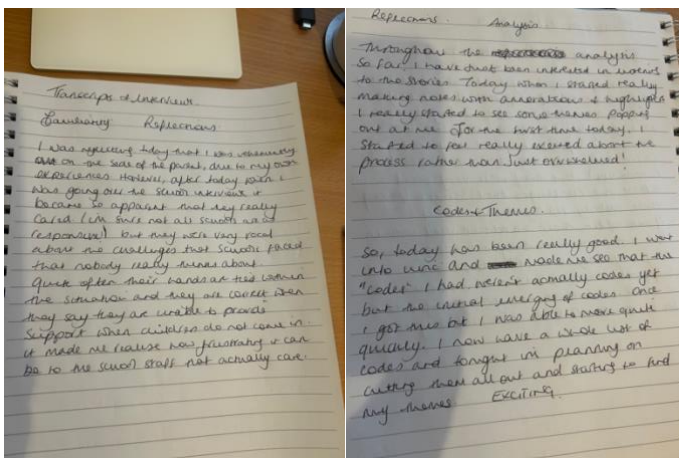 Transcript of Interview.
Reflections
I was reflecting today that I was
on the side of the parent, due to my own
experiences. However, after today when I
was going over the school interview it
became so apparent that they really
cared (I'm sure not all schools are as
responsive) but they were very vocal
about the challenges that schools faced
that nobody really thinks about.
Quite often their hands are tied within
the situation and they are correct when
they say they are unable to provide
support when children do not come in.
it made me realise how frustrating it can
be to the school staff not actually care.
Reflections. Analysis
Throughout the analysis
so far I have just been interested in
to the stories. Today when I started really
making notes with annotations & highlights
I really started to see some themes popping
out at me. For the first time today, I
started to feel really excited about the
process rather than just overwhelmed!
Codes & Themes.
So, today has been really good. I went
into and made me see that the
"codes" I had weren't actually codes yet
but the initial emerging of codes. Once
I got this bit I was able to move quite
quickly. I now have a whole list of
codes and tonight im planning on
cutting them all out and starting to find
my themes EXCITING